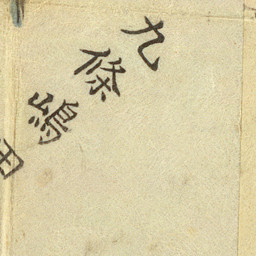 九條嶋